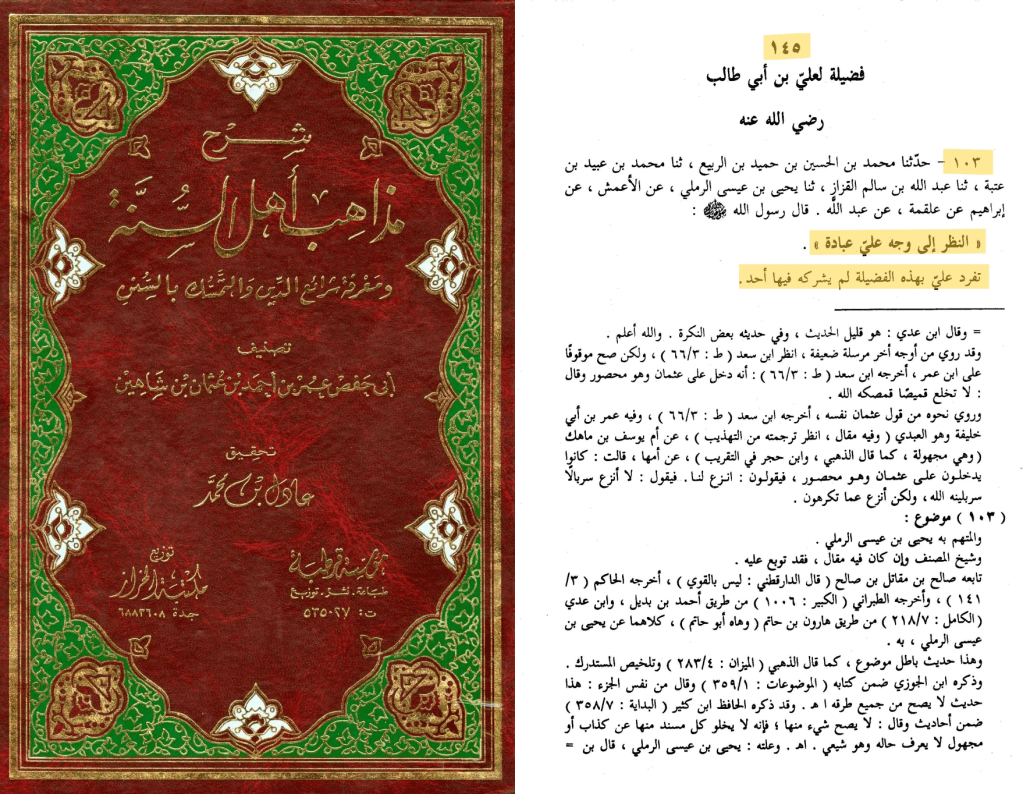 شرح
مذاهب أهل السنة
ومعرفة شرائع الدين والتمسك بالسنن
تصنيف
أبي حفص عمر بن أحمد بن عثمان بن شاهين
تحقيق
عادل بن محمد
مؤسسة قرطبة
طباعة . نشر . توزيع
ت : ٥٣٥٠٢٧
توزيع
مكتبة الخراز
جدة ٦٨٨٣٦٠٨
١٤٥
فضيلة لعليّ بن أبي طالب
رضي الله عنه
١٠٣ – حدّثنا محمد بن الحسين بن حميد بن الربيع ، ثنا محمد بن عبيد بن
عتبة ، ثنا عبد الله بن سالم القزاز ، ثنا يحيى بن عيسى الرملي ، عن الأعمش ، عن
إبراهيم عن علقمة ، عن عبد الله . قال رسول الله ﷺ :
« النظر إلى وجه عليّ عبادة » .
تفرد عليّ بهذه الفضيلة لم يشركه فيها أحد .
= وقال ابن عدي : هو قليل الحديث ، وفي حديثه بعض النكرة . والله أعلم .
وقد روي من أوجه أخر مرسلة ضعيفة ، انظر ابن سعد ( ط : ٦٦/٣ ) ، ولكن صح موقوفًا
على ابن عمر ، أخرجه ابن سعد ( ط : ٦٦/٣ ) : أنه دخل على عثمان وهو محصور وقال
: لا تخلع قميصًا قمصكه الله .
وروي نحوه من قول عثمان نفسه ، أخرجه ابن سعد ( ط : ٦٦/٣ ) ، وفيه عمر بن أبي
خليفة وهو العبدي ( وفيه مقال ، انظر ترجمته من التهذيب ) ، عن أم يوسف بن ماهك
( وهي مجهولة ، كما قال الذهبي ، وابن حجر في التقريب ) ، عن أمها ، قالت : كانوا
يدخلـون علـى عثمـان وهـو محصـور ، فيقولـون : انـزع لنـا . فيقول : لا أنزع سربالًا
سربلينه الله، ولكن أنزع عما تكرهون .
( ١٠٣ ) موضوع :
والمتهم به يحيى بن عيسى الرملي .
وشيخ المصنف وإن كان فيه مقال ، فقد توبع عليه .
تابعه صالح بن مقاتل بن صالح ( قال الدارقطني : ليس بالقوي ) ، أخرجه الحاكم ( ٣/
١٤١ ) ، وأخرجه الطبراني ( الكبير : ١٠٠٦ ) من طريق أحمد بن بديل ، وابن عدي
( الكامل : ٢١٨/٧ ) من طريق هارون بن حاتم ( وهاه أبو حاتم ) ، كلاهما عن يحيى بن
عيسى الرملي ، به .
وهذا حديث باطل موضوع ، كما قال الذهبي ( الميزان : ٢٨٣/٤ ) وتلخيص المستدرك .
وذكره ابن الجوزي ضمن كتابه ( الموضوعات : ٣٥٩/١ ) وقال من نفس الجزء : هذا
حديث لا يصح من جميع طرقه ا هـ . وقد ذكره الحافظ ابن كثير ( البداية : ٣٥٨/٧ )
ضمن أحاديث وقال : لا يصح شيء منها ؛ فإنه لا يخلو كل مسند منها عن كذاب أو
مجهول لا يعرف حاله وهو شيعي . اهـ . وعلته : يحيى بن عيسى الرملي ، قال بن =